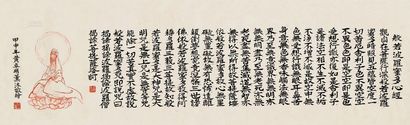 般若波羅蜜多心經
觀自在菩薩行深般若波羅
蜜多時照見五蘊皆空度一
切苦厄舍利子色不異空空
不異色色即是空空即是色
受想行識亦復如是舍利子
是諸法空相不生不滅不垢
不淨不增不減是故空中無
色無受想行識無眼耳鼻舌
身意無色聲香味觸法無眼
界乃至無意識界無無明亦
無無明盡乃至無老死亦無
老死盡無苦集滅道無智亦
無得以無所得故菩提薩埵
依般若波羅蜜多故心無罣
礙無罣礙故無有恐怖遠離
顛倒夢想究竟涅槃三世諸佛
依般若波羅蜜多故得阿耨多
羅三藐三菩提故知般若
波羅蜜多是大神咒是大
明咒是無上咒是無等等咒
能除一切苦真實不虛故說
般若波羅蜜多咒即說咒曰
揭諦揭諦波羅揭諦波羅僧
揭諦菩提薩婆訶
甲申年